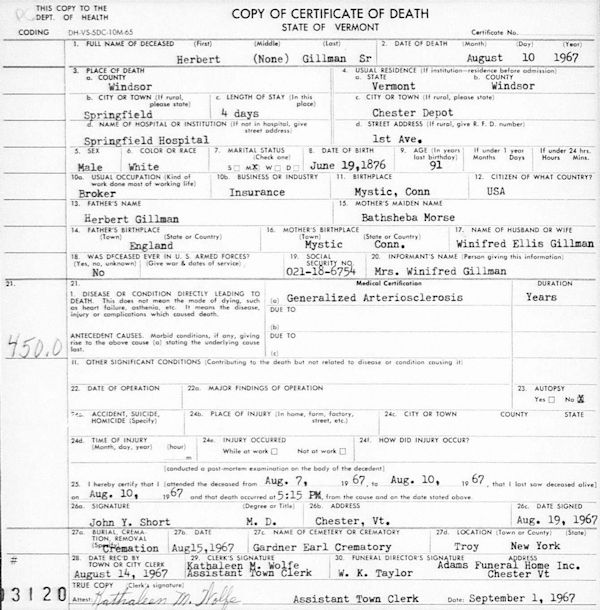 THIS COPY TO THE
DEPT. OF HEALTH
COPY OF CERTIFICATE OF DEATH
STATE OF VERMONT
CODING DH-VS-5DC-10M-65 Certificate No.
1. FULL NAME OF DECEASED (First) (Middle) (Last) 2. DATE OF DEATH (Month) (Day) (Year)
Herbert (None) Gillman Sr August 10 1967
3. PLACE OF DEATH 4. USUAL RESIDENCE (If institution—residence before admission)
a. COUNTY a. STATE b. COUNTY
Windsor Vermont Windsor
b. CITY OR TOWN (If rural, please state) c. LENGTH OF STAY (In this place) c. CITY OR TOWN (If rural, please state)
Springfield 4 days Chester Depot
d. NAME OF HOSPITAL OR INSTITUTION (If not in hospital, give street address) d. STREET ADDRESS (If rural, give R. F. D. number)
Springfield Hospital 1st Ave.
5. SEX 6. COLOR OR RACE 7. MARITAL STATUS (Check one) 8. DATE OF BIRTH 9. AGE (In years last birthday) If under 1 year Months Days If under 24 hrs. Hours Mins.
Male White S M X W D June 19,1876 91
10a. USUAL OCCUPATION (Kind of work done most of working life) 10b. BUSINESS OR INDUSTRY 11. BIRTHPLACE 12. CITIZEN OF WHAT COUNTRY?
Broker Insurance Mystic, Conn USA
13. FATHER'S NAME 15. MOTHER'S MAIDEN NAME
Herbert Gillman Bathsheba Morse
14. FATHER'S BIRTHPLACE (Town) (State or Country) 16. MOTHER'S BIRTHPLACE (Town) (State or Country) 17. NAME OF HUSBAND OR WIFE
England Mystic Conn. Winifred Ellis Gillman
18. WAS DECEASED EVER IN U. S. ARMED FORCES? (Yes, no, unknown) (Give war & dates of service) 19. SOCIAL SECURITY NO. 20. INFORMANT'S NAME (Person giving this information)
No 021-18-6754 Mrs. Winifred Gillman
21. 21. Medical Certification DURATION
I. DISEASE OR CONDITION DIRECTLY LEADING TO DEATH. (This does not mean the mode of dying, such as heart failure, asthenia, etc. It means the disease, injury or complications which caused death.
(a) Generalized Arteriosclerosis Years
DUE TO
(b)
450.0
ANTECEDENT CAUSES. Morbid conditions, if any, giving rise to the above cause (a) stating the underlying cause last.
DUE TO
(c)
II. OTHER SIGNIFICANT CONDITIONS (Contributing to the death but not related to disease or condition causing it)
22. DATE OF OPERATION 22a. MAJOR FINDINGS OF OPERATION 23. AUTOPSY
Yes No X
24a. ACCIDENT, SUICIDE, HOMICIDE (Specify) 24b. PLACE OF INJURY (In home, farm, factory, street, etc.) 24c. CITY OR TOWN COUNTY STATE
24d. TIME OF INJURY (Month, day, year) (hour) m 24e. INJURY OCCURRED While at work Not at work 24f. HOW DID INJURY OCCUR?
(conducted a post-mortem examination on the body of the decedent)
25. I hereby certify that I (attended the deceased from Aug. 7, 1967, to Aug. 10, 1967, that I last saw deceased alive)
on Aug. 10, 1967 and that death occurred at 5:15 PM, from the cause and on the date stated above.
26a. SIGNATURE (Degree or Title) 26b. ADDRESS 26c. DATE SIGNED
John Y. Short M. D. Chester, Vt. Aug. 19, 1967
27a. BURIAL, CREMATION, REMOVAL (Specify) 27b. DATE 27c. NAME OF CEMETERY OR CREMATORY 27d. LOCATION (Town or County) (State)
Cremation Aug15,1967 Gardner Earl Crematory Troy New York
28. DATE REC'D BY TOWN OR CITY CLERK 29. CLERK'S SIGNATURE 30. FUNERAL DIRECTOR'S SIGNATURE ADDRESS
August 14, 1967 Kathaleen M. Wolfe Assistant Town Clerk W. K. Taylor Adams Funeral Home Inc. Chester Vt
#
03120
TRUE COPY (Clerk's signature)
Attest: Kathaleen M. Wolfe Assistant Town Clerk Date: September 1, 1967